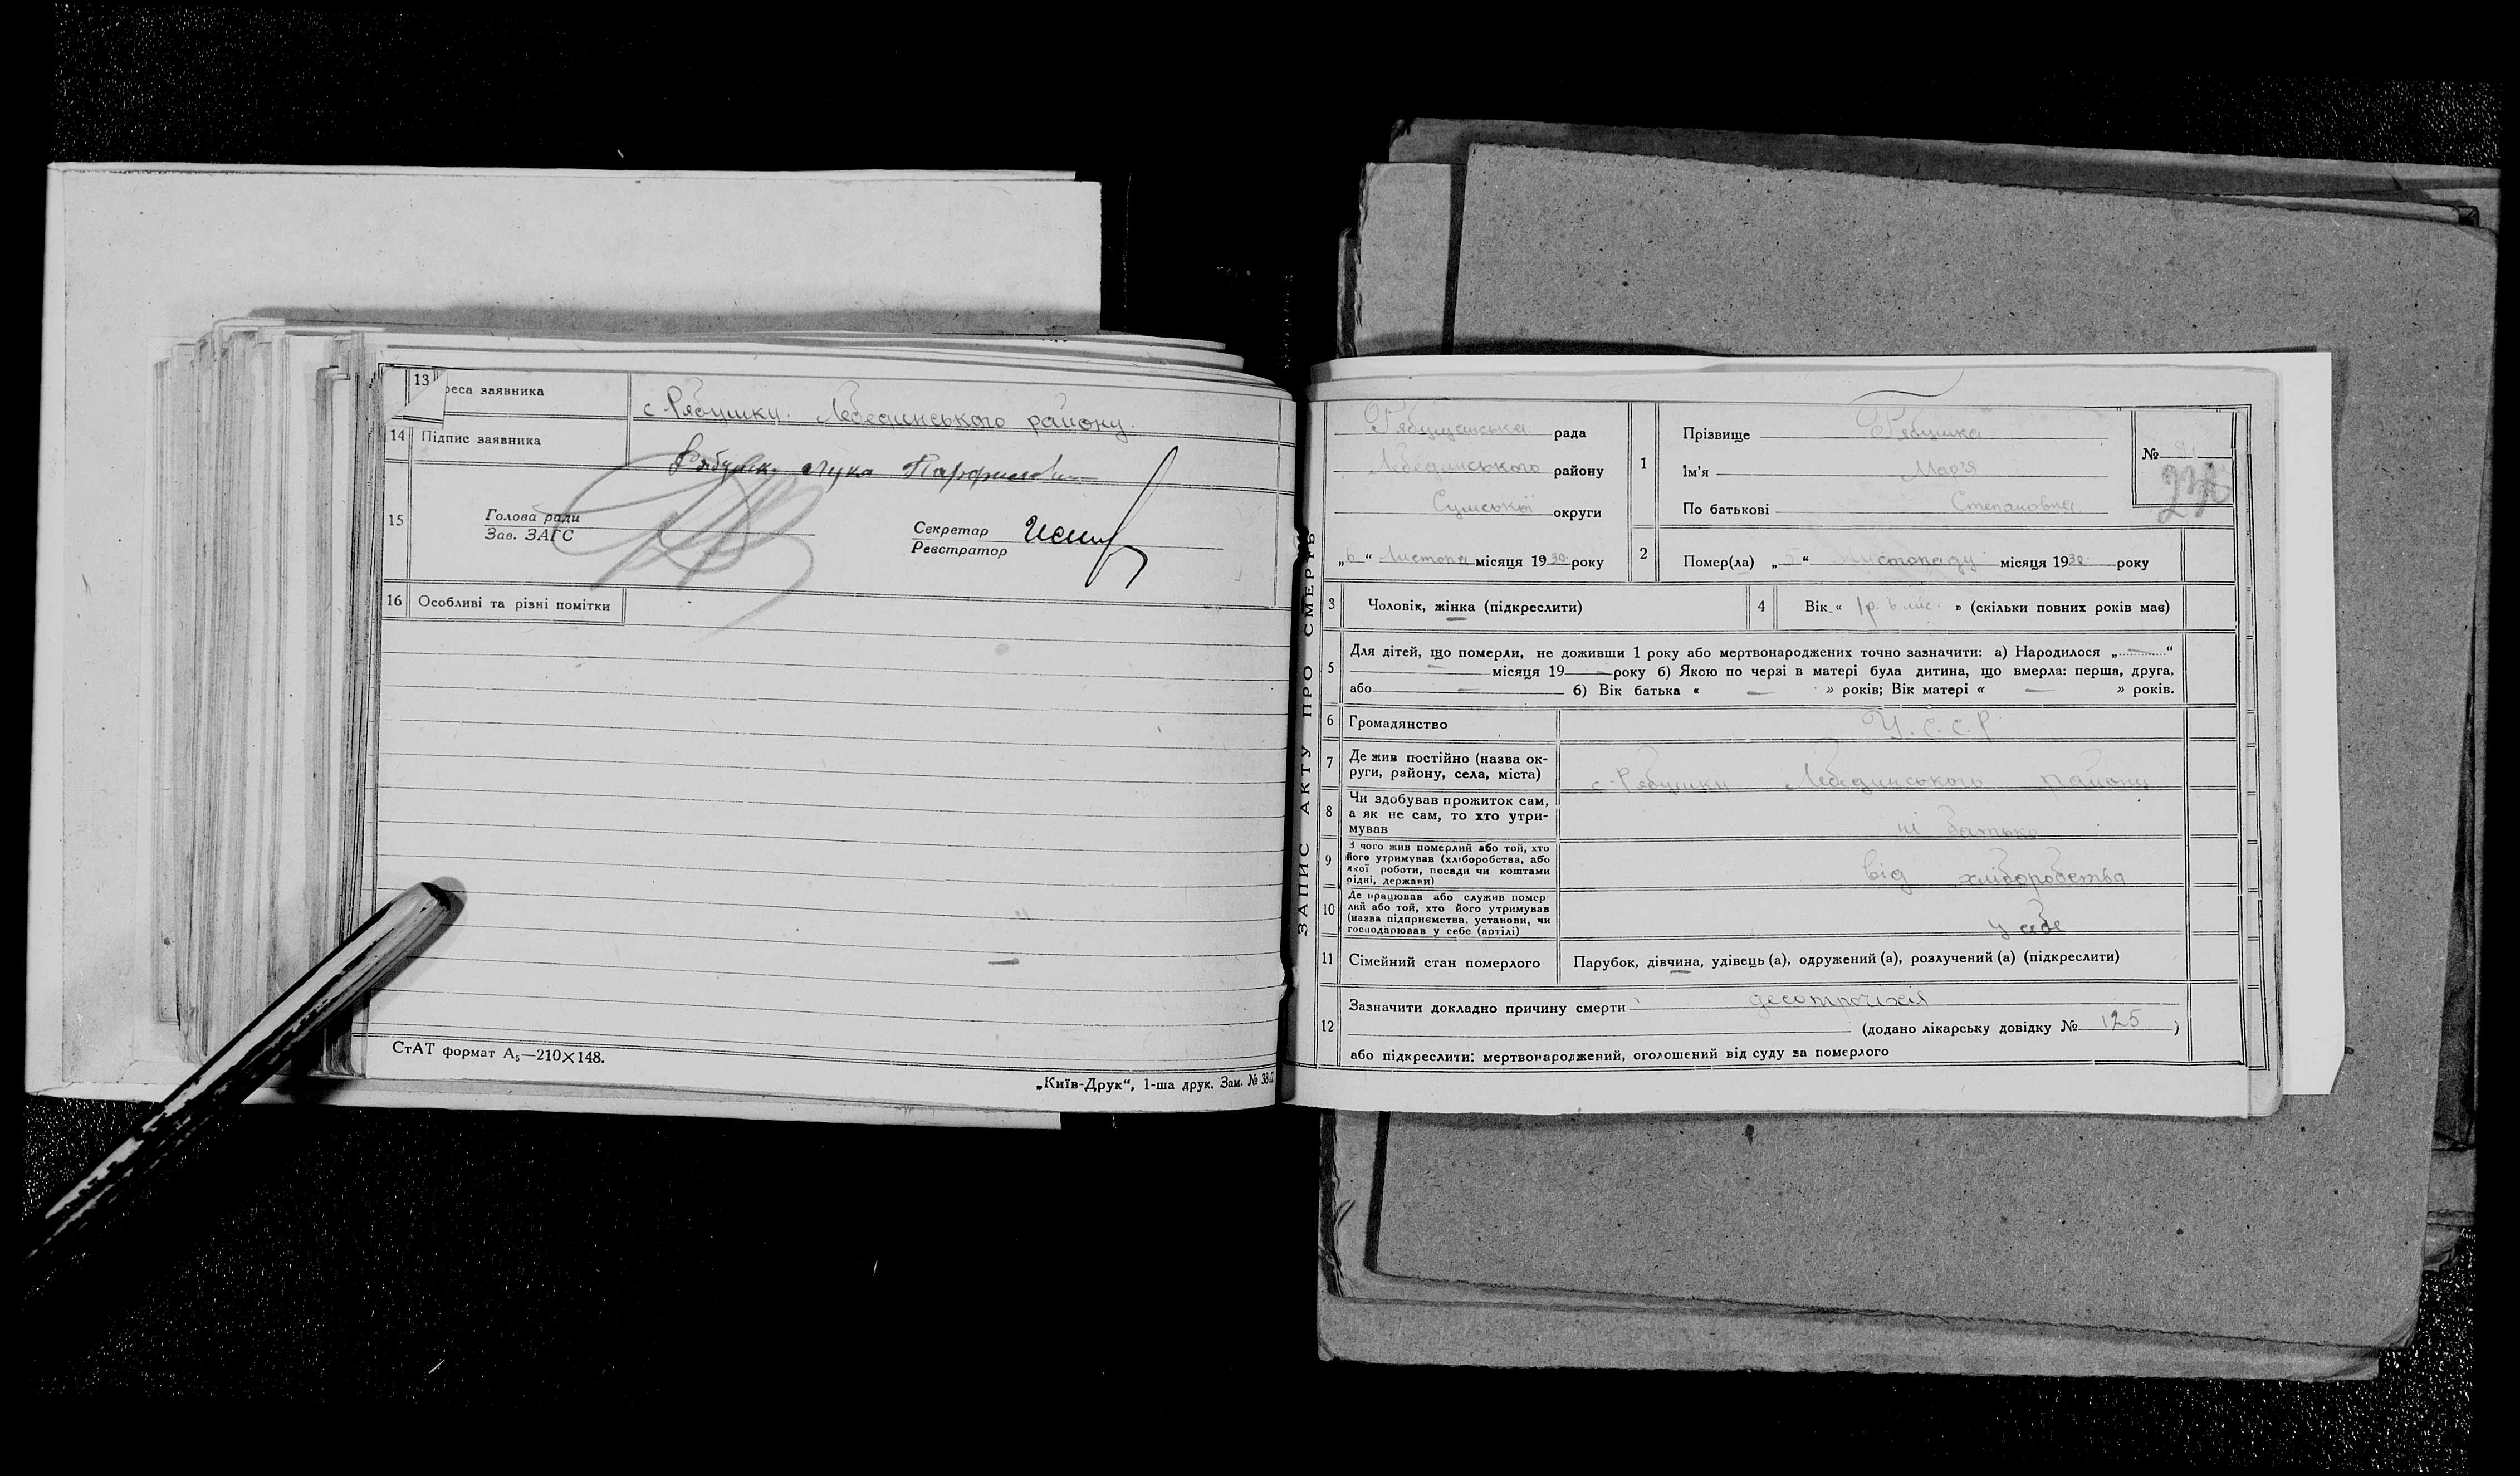 13 реса заявника с. Рябушки. Лебединського району.
14 Підпис заявника Рябушка Лука Парфилович
15 Голова ради
Зав. ЗАГС
Секретар
Реєстратор
16 Особливі та різні помітки
СтАТ формат А5—210×148.
„Київ-Друк“, 1-ша друк. Зам. №
ЗАПИС АКТУ ПРО СМЕРТЬ
Рябушанська рада
Лебединського району
Сумської округи
„6“ Листопа місяця 1930 року
1 Прізвище Рябушка
Ім'я Мар'я
По батькові Степановна
№
2 Помер(ла) „5“ Листопаду місяця 1930 року
3 Чоловік, жінка (підкреслити)
4 Вік „ 1 р. 6 міс. » (скільки повних років має)
5 Для дітей, що померли, не доживши 1 року або мертвонароджених точно зазначити: а) Народилося „ — “
— місяця 19 — року б) Якою по черзі в матері була дитина, що вмерла: перша, друга,
або — б) Вік батька « — » років; Вік матері « — » років.
6 Громадянство У.С.С.Р.
7 Де жив постійно (назва ок-
руги, району, села, міста) с. Рябушки Лебединського району
8 Чи здобував прожиток сам,
а як не сам, то хто утри-
мував ні батько
9 З чого жив померлий або той, хто
його утримував (хліборобства, або
якої роботи, посади чи коштами
рідні, держави) від хліборобства
10 Де працював або служив помер-
лий або той, хто його утримував
(назва підприємства, установи, чи
господарював у себе (артілі) у себе
11 Сімейний стан померлого Парубок, дівчина, удівець (а), одружений (а), розлучений (а) (підкреслити)
12 Зазначити докладно причину смерти
(додано лікарську довідку № 125 )
або підкреслити: мертвонароджений, оголошений від суду за померлого